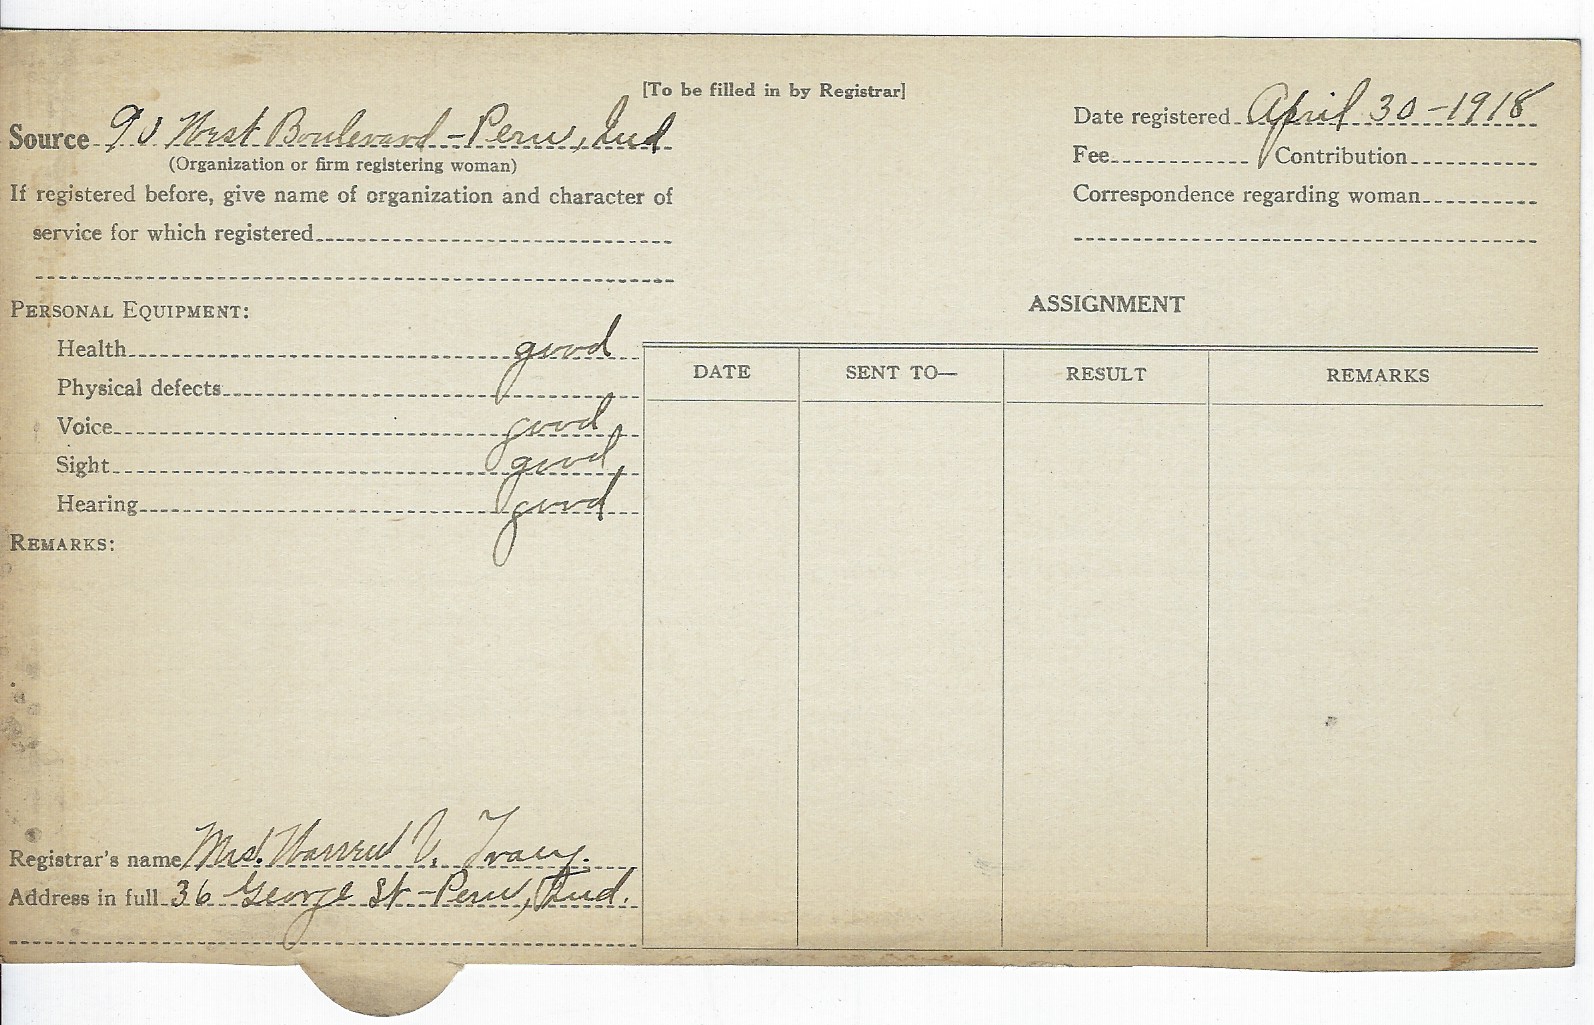 [To be filled in by Registrar]
Source West Boulevard - Peru, Ind
(Organization or firm registering woman)
If registered before, give name of organization and character of
service for which registered
PERSONAL EQUIPMENT:
Health good
Physical defects
Voice good
Sight good
Hearing good
REMARKS:
Registrar's name Mrs. Warren V. Tracy.
Address in full 36 George St - Peru, Ind.
Date registered April 30 - 1918
Fee Contribution
Correspondence regarding woman
ASSIGNMENT
DATE SENT TO— RESULT REMARKS